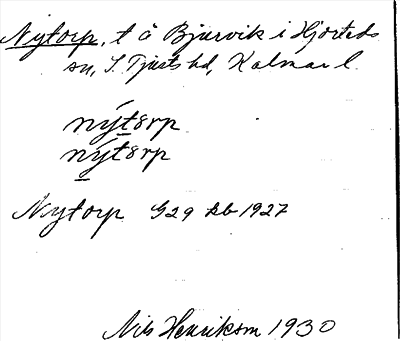 Nytorp, t å Bjurvik i Hjorteds
sn, S. Tjusts hd, Kalmar l.
nýtorp
nýtorp
Nytorp G29 kb 1927
Nils Henrikson 1930